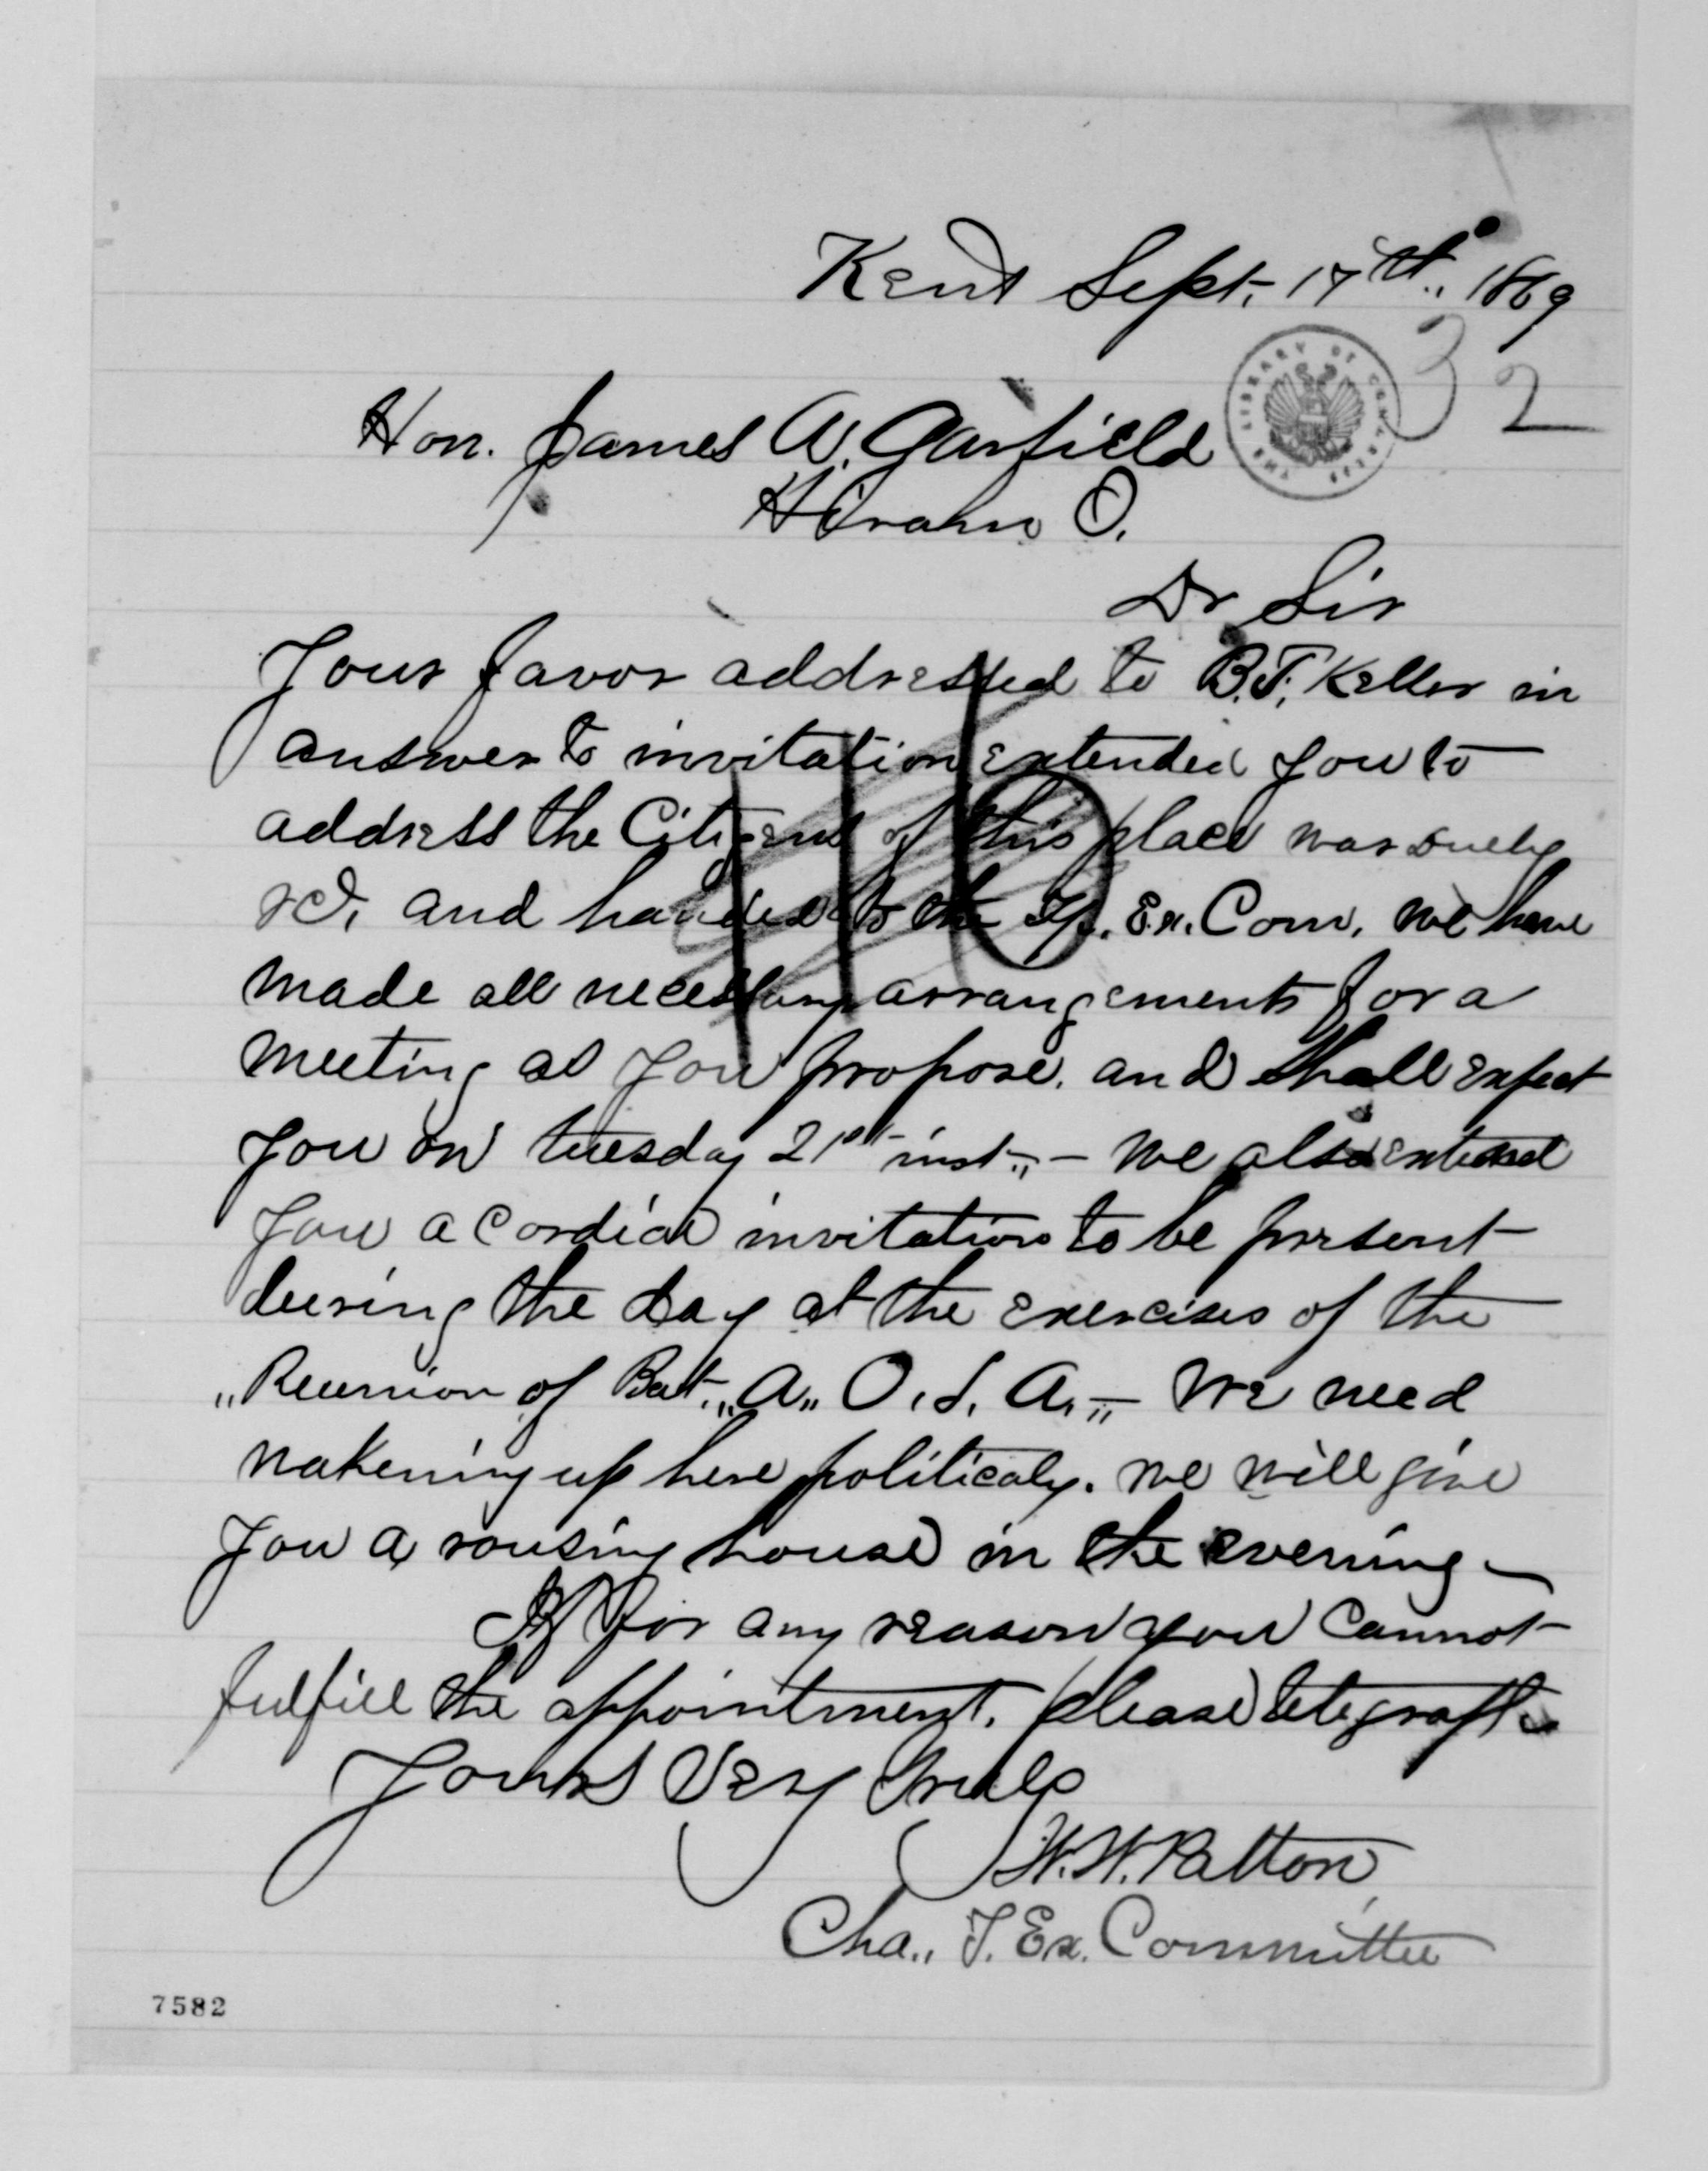 Kent Sept. 17th., 1869
32
THE LIBRARY OF CONGRESS
Hon. James A. Garfield
Hiram O.
Dr Sir
Your favor addressed to B.F. Keller in
answer to invitation extended you to
address the Citizens of this place was duely
rcd. and handed to the Tp. Ex. Com. we have
made all necessary arrangements for a
meeting as you propose. and shall expect
you on tuesday 21st inst., – we also extend
you a cordial invitation to be present
during the day at the exercises of the
„Reunion of Bat. „A„ O. L. A.„ – We need
wakening up here politicaly. we will give
you a rousing house in the evening –
If for any reason you cannot
fulfill the appointment. please telegraph
Yours Very Truly
W.W. Patton
Cha., T. Ex. Committee
116
7582